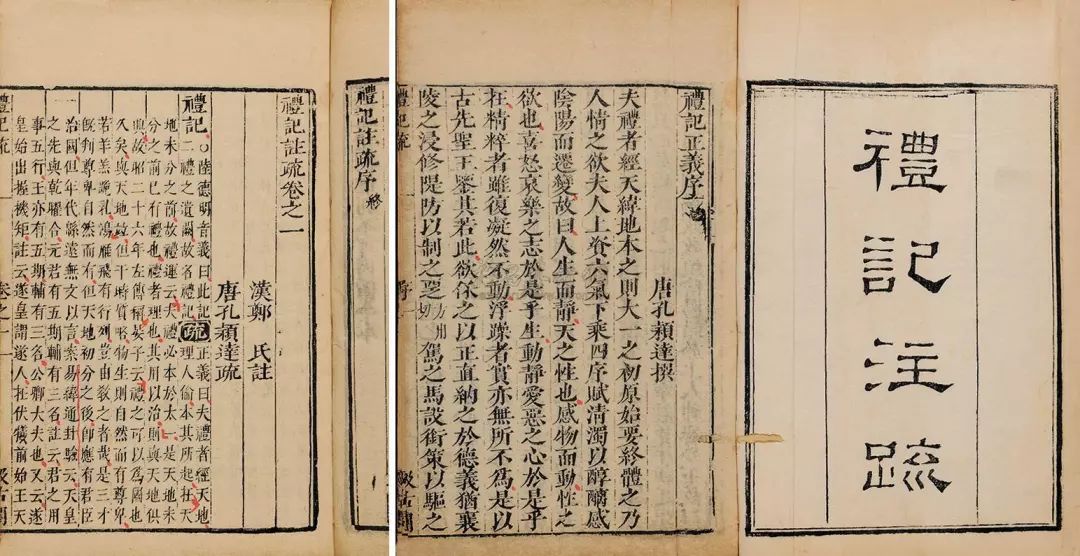 禮記注疏
禮記正義序
唐孔穎達撰
夫禮者經天緯地本之則大一之初原始要終體之乃
人情之欲夫人上資六氣下乘四序賦清濁以醇醨感
陰陽而遷變故曰人生而靜天之性也感物而動性之
欲也喜怒哀樂之志於是乎生動靜愛惡之心於是乎
在精粹者雖復凝然不動浮躁者實亦無所不為是以
古先聖王鑒其若此欲保之以正直納之於德義猶襄
陵之浸修隄防以制之覂方用切駕之馬設銜策以驅之
禮記疏 序 一 汲古閣
禮記註疏序終
禮記註疏卷之一
漢鄭氏註
唐孔穎達疏
禮記○陸德明音義曰此記二禮之遺闕故名禮記疏正義曰夫禮者經天地理人倫本其所起在天
地未分之前故禮運云夫禮必本於太一是天地未
分之前已有禮也禮者理也其用以治則與天地俱
興故昭二十六年左傳稱晏子云禮之可以為國也
久矣與天地並但于時質略物生則自然而有尊卑
若羊羔跪乳鴻雁飛有行列豈由教之者哉是三才
既判尊卑自然而有但天地初分之後即應有君臣
治國但年代緜遠無文以言案易緯通卦驗云天皇
之先與乾曜合元君有五期輔有三名註云君之用
事五行王亦有五期輔有三名公卿大夫也又云遂
皇始出握機矩註云遂皇謂遂人在伏犧前始王天
禮記疏 卷之一 一 汲古閣